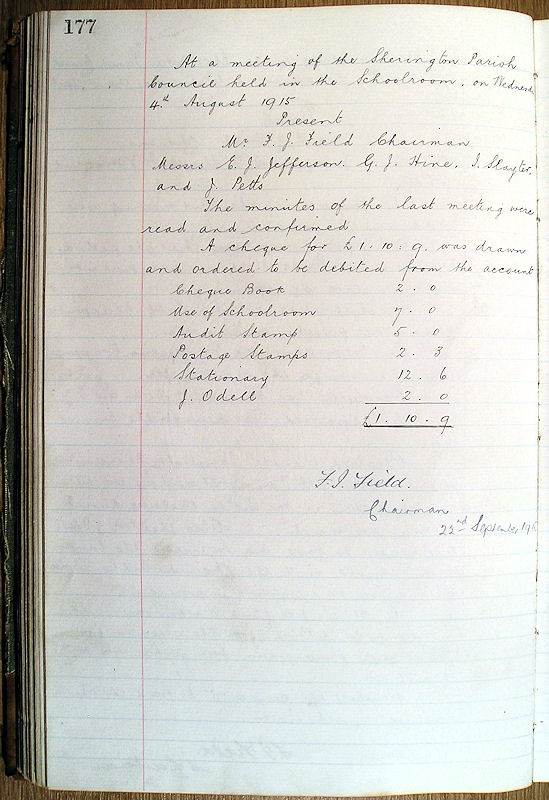 177
At a meeting of the Sherington Parish
Council held in the Schoolroom, on
4th August 1915
Present
Mr F. J. Field Chairman
Messrs E. J. Jefferson. G. J. Hine, J. Slayter,
and J. Petts
The minutes of the last meeting were
read and confirmed
A cheque for £1. 10: 9. was drawn
and ordered to be debited from the account
Cheque Book 2. 0
Use of Schoolroom 7. 0
Audit Stamp 5. 0
Postage Stamps 2. 3
Stationary 12. 6
J. Odell 2. 0
£1. 10. 9
F. J. Field.
Chairman
22nd September